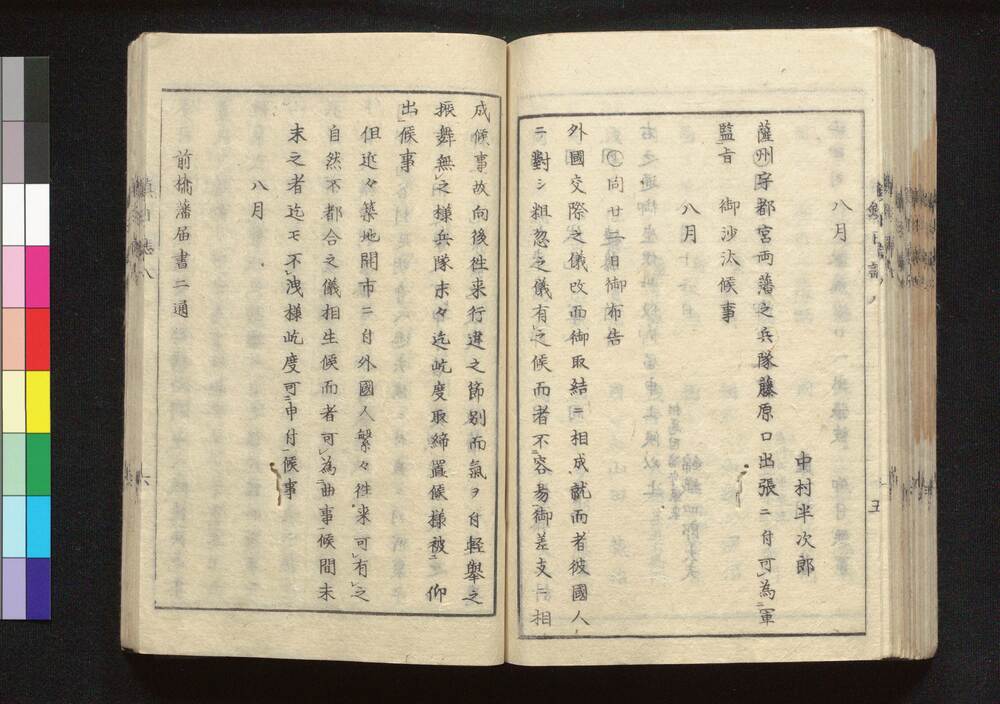 八月
中村半次郎
薩州宇都宮両藩之兵隊藤原口出張ニ付可為軍
監旨　御沙汰候事
八月
同廿二日御布告
外國交際之儀改而御取結ニ相成就而者彼國人
ニ對シ粗忽之儀有之候而者不容易御差支ニ相
五
成候事故向後往来行違之節別而氣ヲ付軽擧之
振舞無之様兵隊末々迄屹度取締置候様被　仰
出候事
但近々築地開市ニ付外國人繁々往来可有之
自然不都合之儀相生候而者可為曲事候間末
末之者迄モ不洩様屹度可申付候事
八月
前橋藩届書二通
六